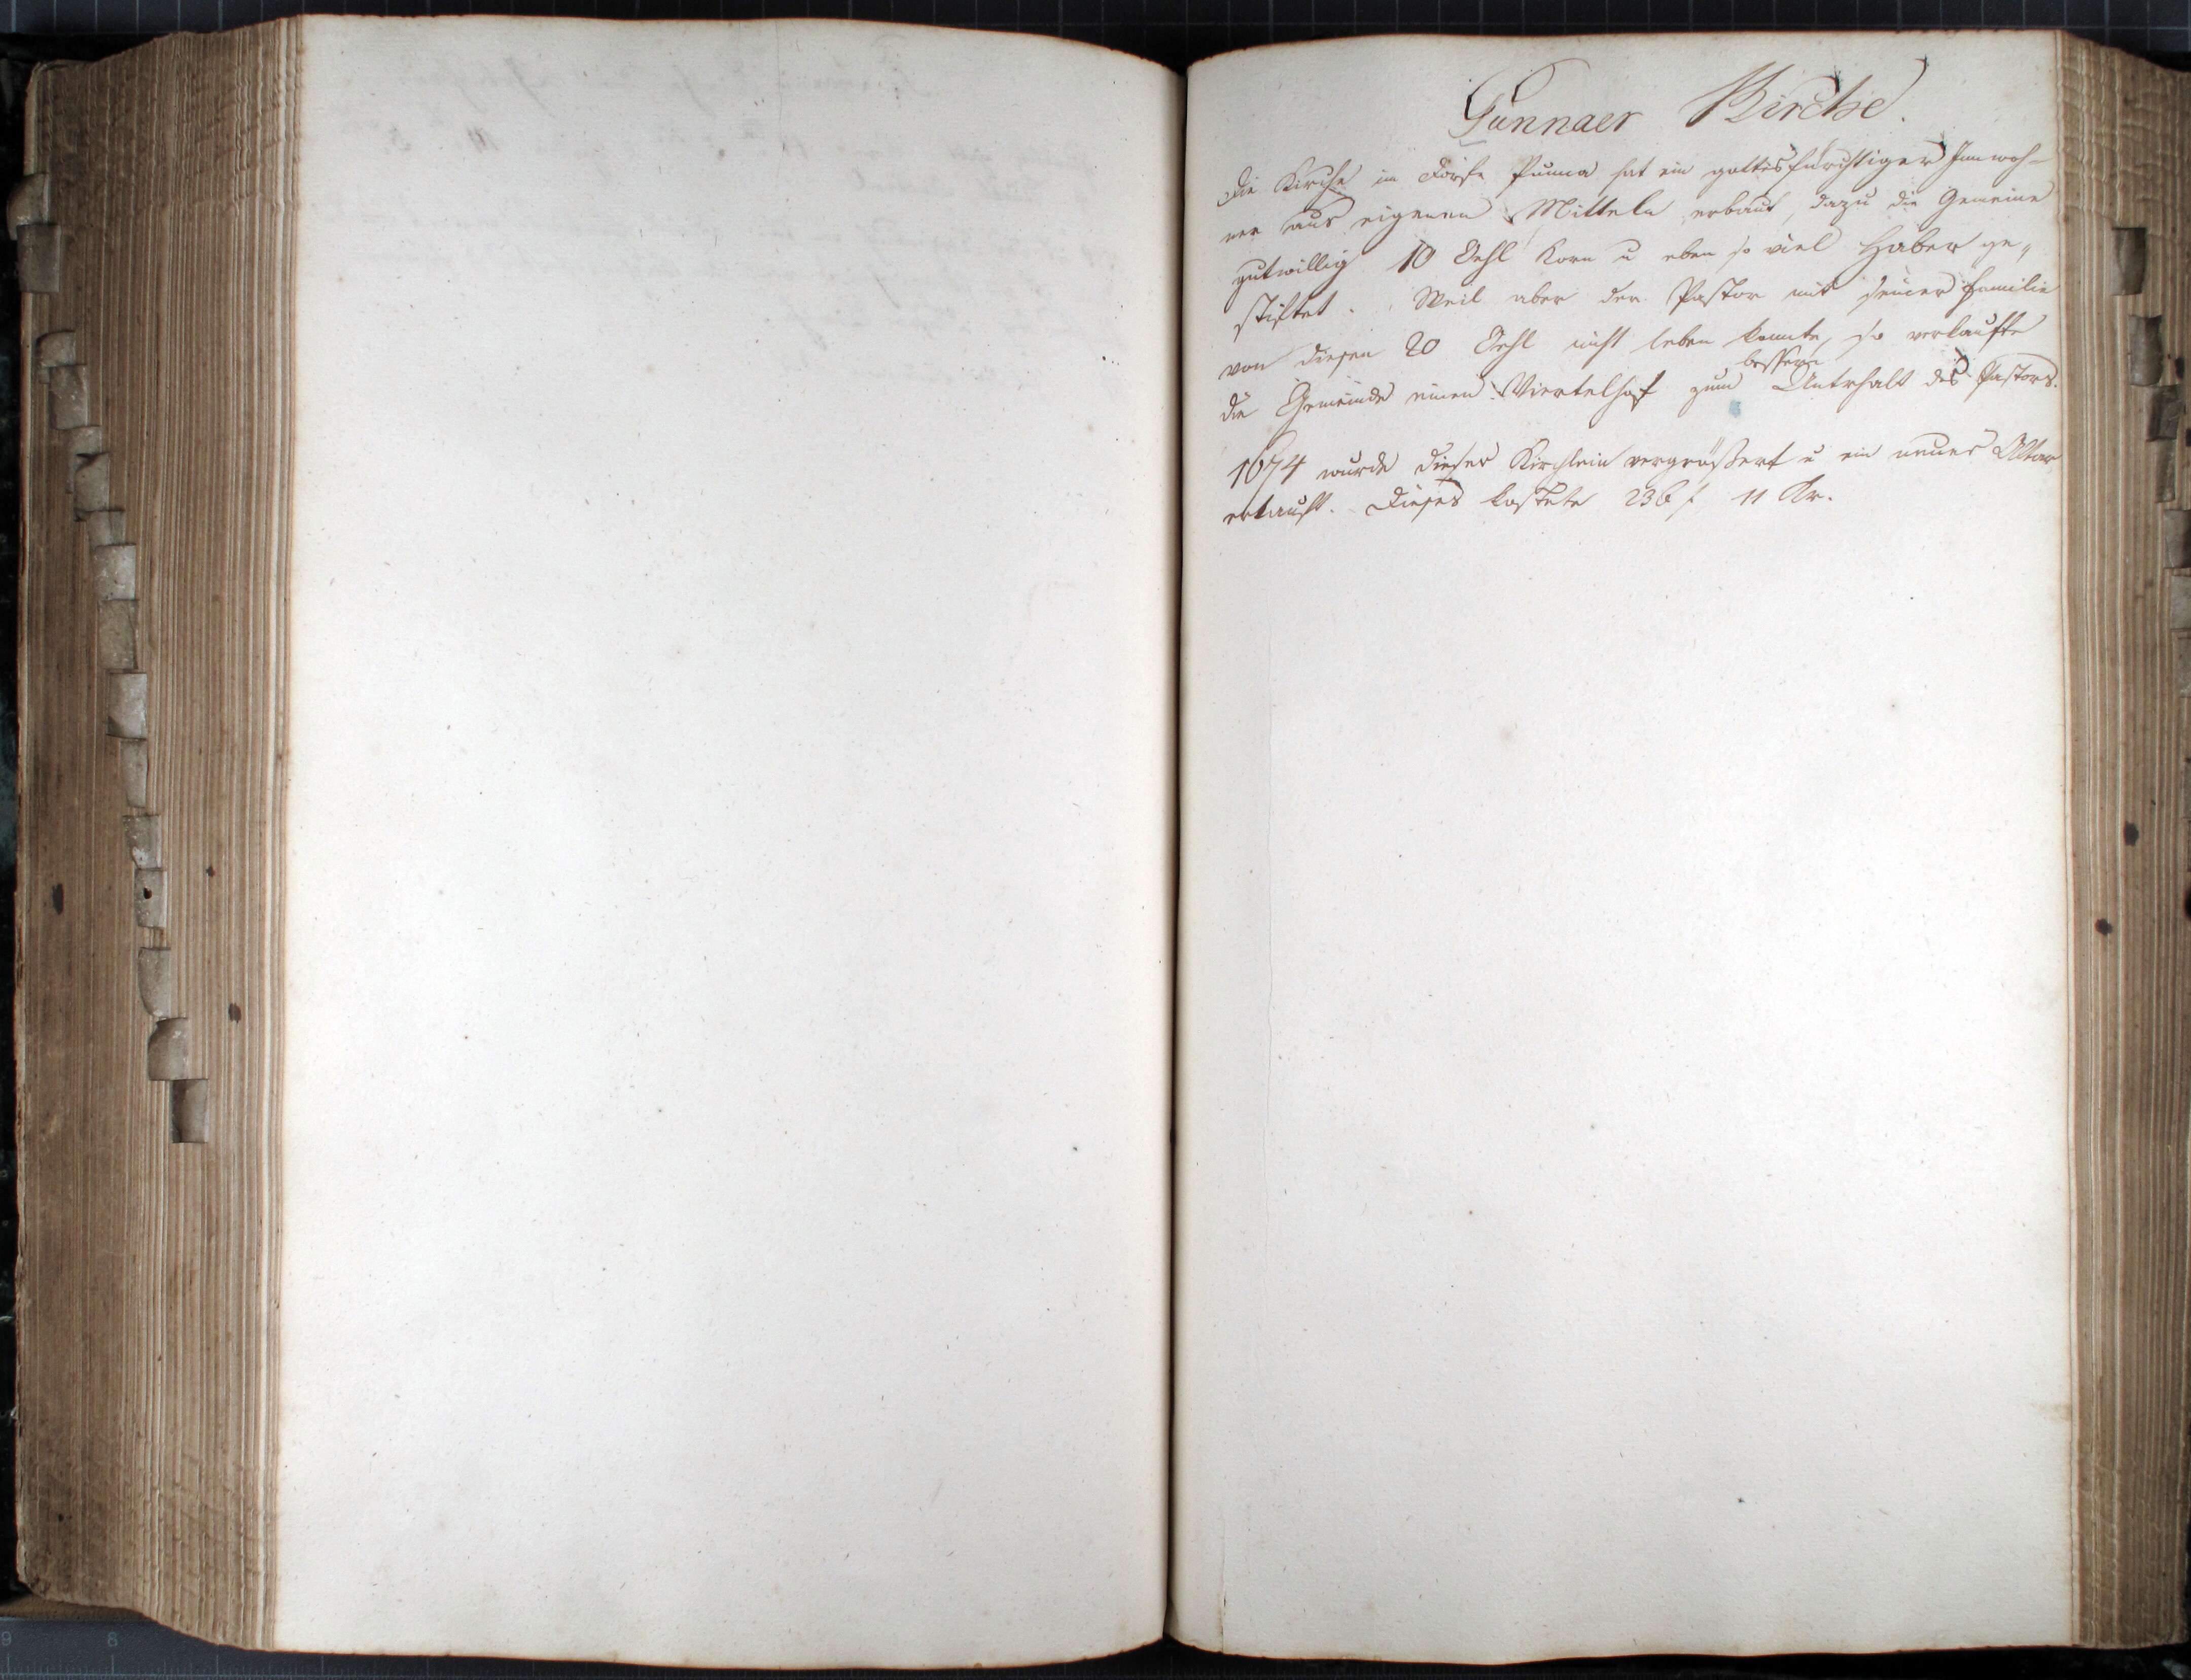 Gunnaer Kirche.
Die Kirche im Dorfe Gunna hat ein gottesfürchtiger Innwoh-
ner aus eigenen Mitteln erbaut, dazu die Gemeine
gutwillig 10 Schl Korn u eben so viel Haber ge„
stiftet. Weil aber der Pastor mit seiner Familie
von diesen 20 Schl nicht leben konnte, so verkaufte
die Gemeinde einen Viertelhof zum bessern Unterhalt des Pastors.
1674 wurde dieses Kirchlein vergrößert u ein neuer Altar
erkauft. Dieses kostete 236 f 11 Kr.
9 8